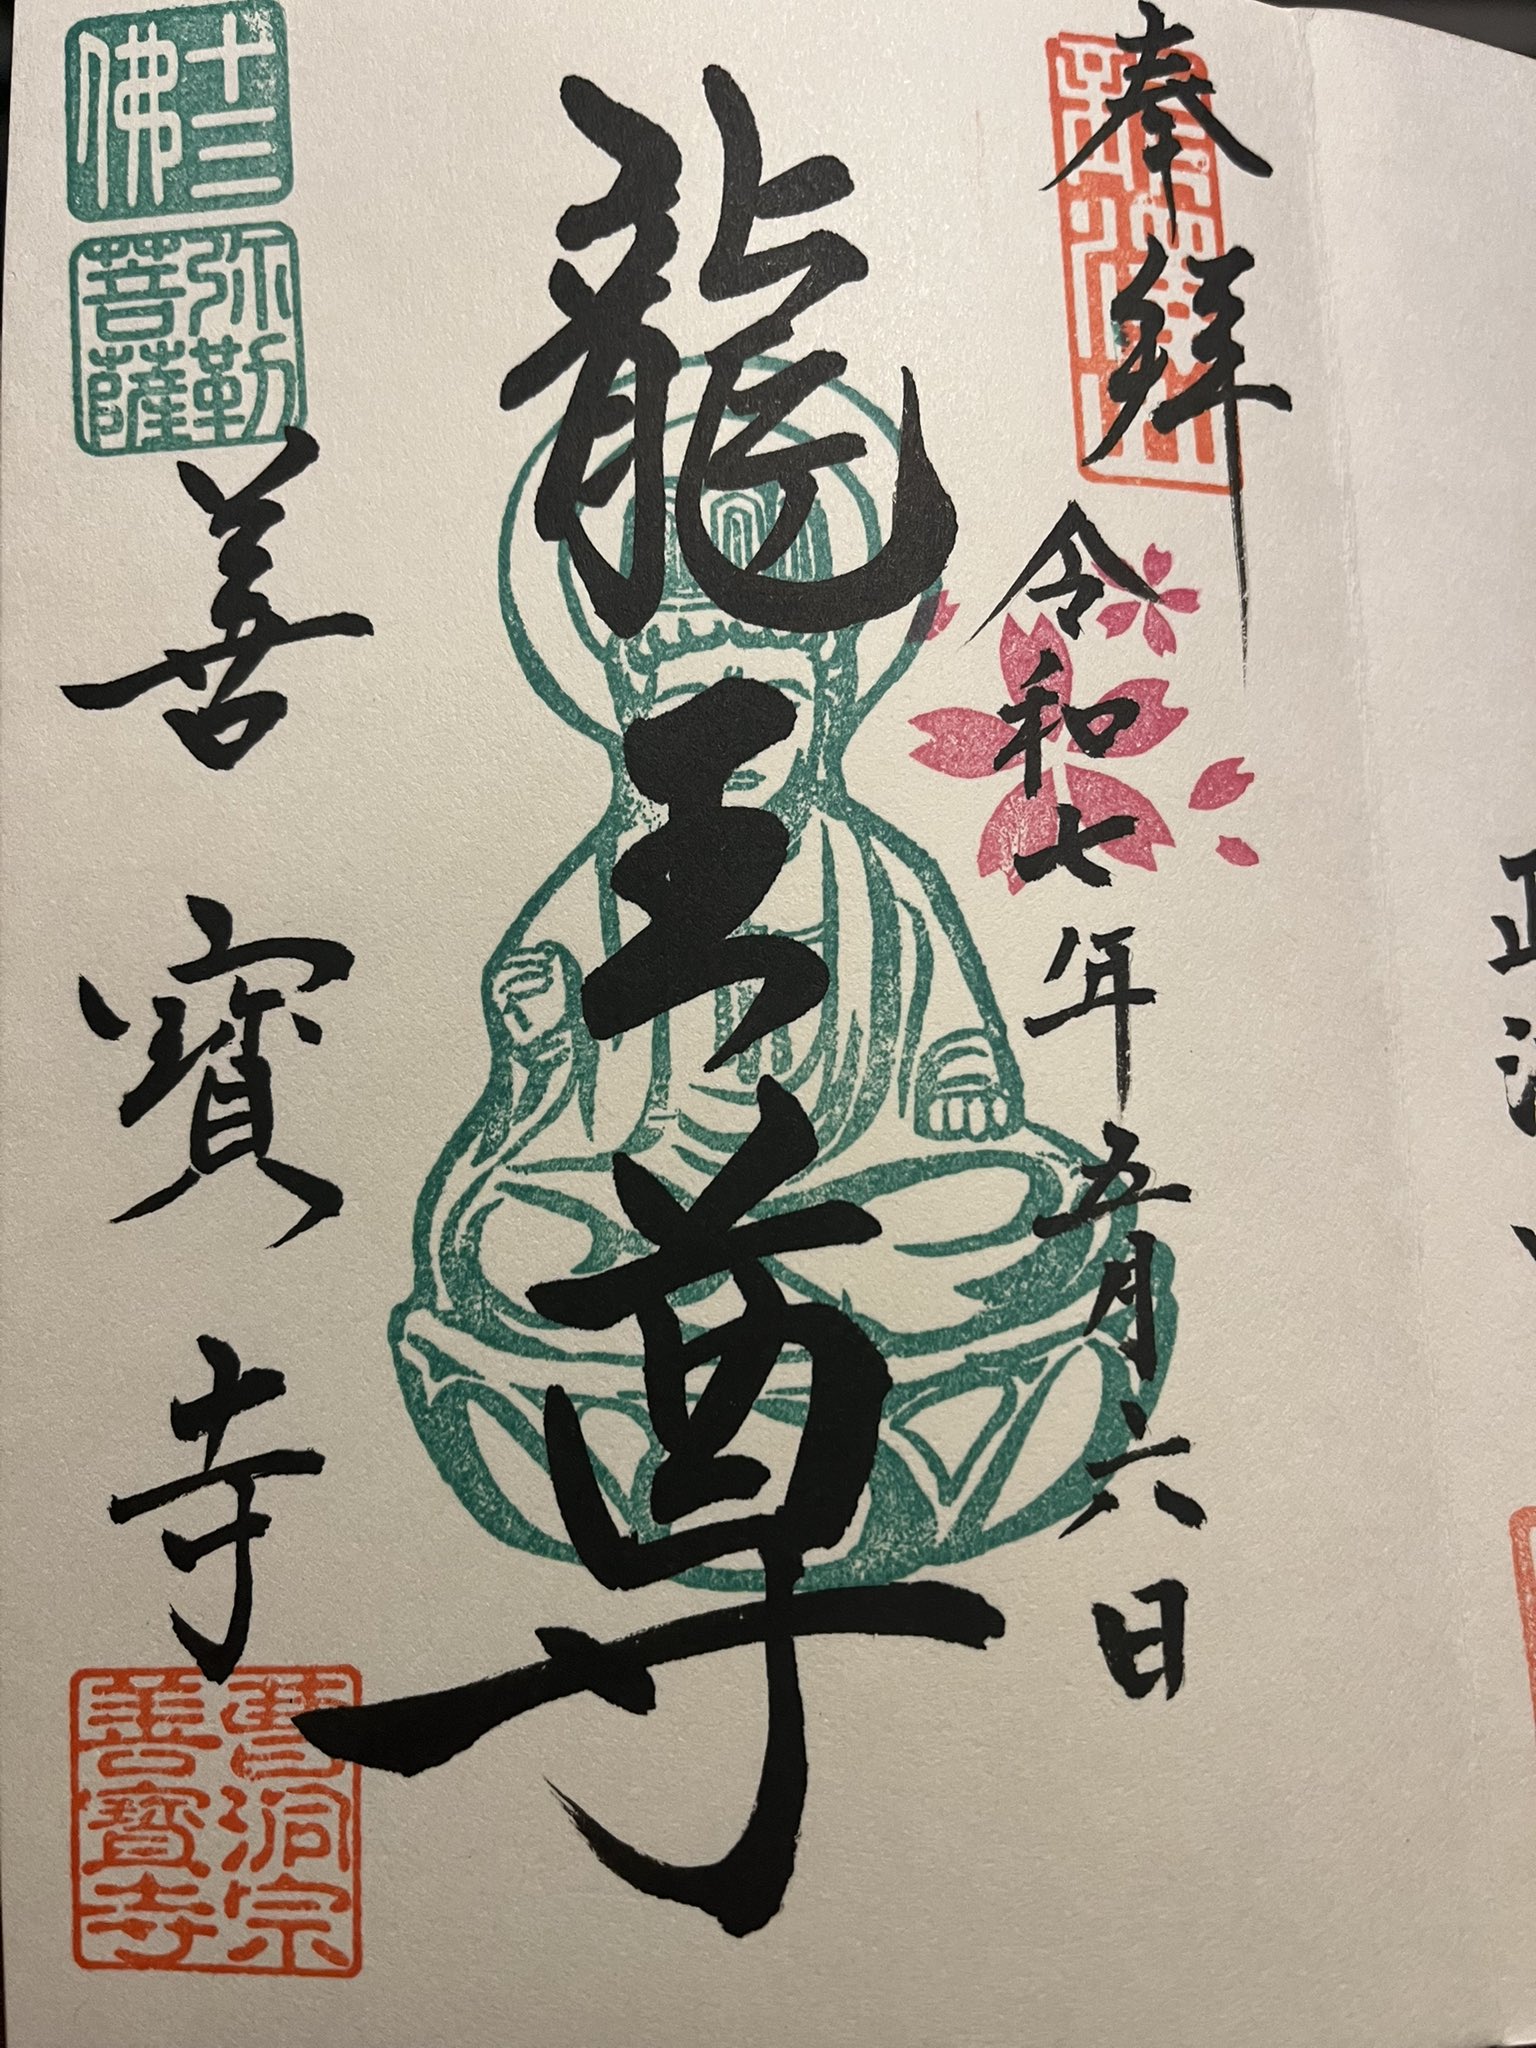 奉拜
令和七年五月六日
龍王尊
十三佛
弥勒菩薩
善寳寺
曹洞宗善寳寺